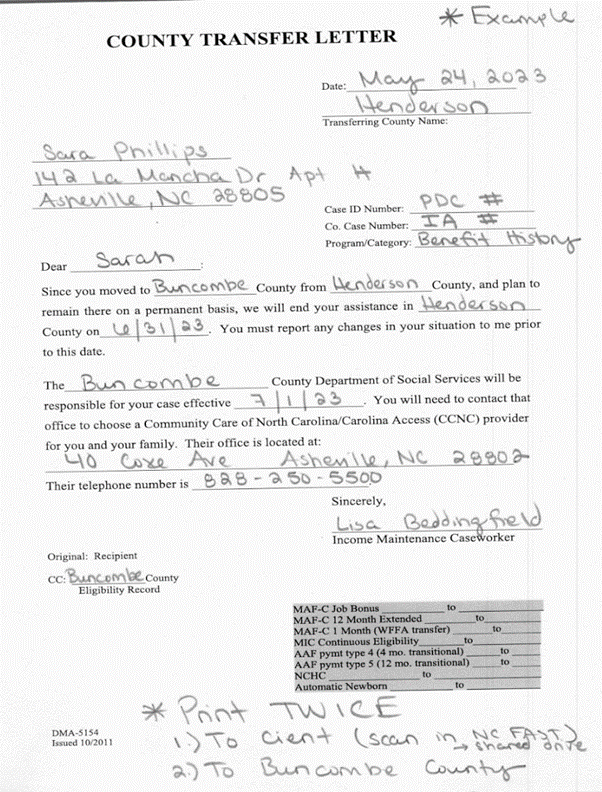 * Example
COUNTY TRANSFER LETTER
Date: May 24, 2023
Henderson
Transferring County Name:
Sara Phillips
142 La Mancha Dr Apt H
Asheville, NC 28805
Case ID Number: PDC #
Co. Case Number: IA #
Program/Category: Benefit History
Dear Sarah:
Since you moved to Buncombe County from Henderson County, and plan to
remain there on a permanent basis, we will end your assistance in Henderson
County on 6/31/23. You must report any changes in your situation to me prior
to this date.
The Buncombe County Department of Social Services will be
responsible for your case effective 7/1/23. You will need to contact that
office to choose a Community Care of North Carolina/Carolina Access (CCNC) provider
for you and your family. Their office is located at:
40 Coxe Ave Asheville, NC 28802
Their telephone number is 828-250-5500
Sincerely,
Lisa Beddingfield
Income Maintenance Caseworker
Original: Recipient
CC: Buncombe County
Eligibility Record
MAF-C Job Bonus ______ to ______
MAF-C 12 Month Extended ______ to ______
MAF-C 1 Month (WFFA transfer) ______ to ______
MIC Continuous Eligibility ______ to ______
AAF pymt type 4 (4 mo. transitional) ______ to ______
AAF pymt type 5 (12 mo. transitional) ______ to ______
NCHC ______ to ______
Automatic Newborn ______ to ______
* Print TWICE
DMA-5154
Issued 10/2011
1.) To Cient (scan in NC FAST)
→ shared drive
2.) To Buncombe County